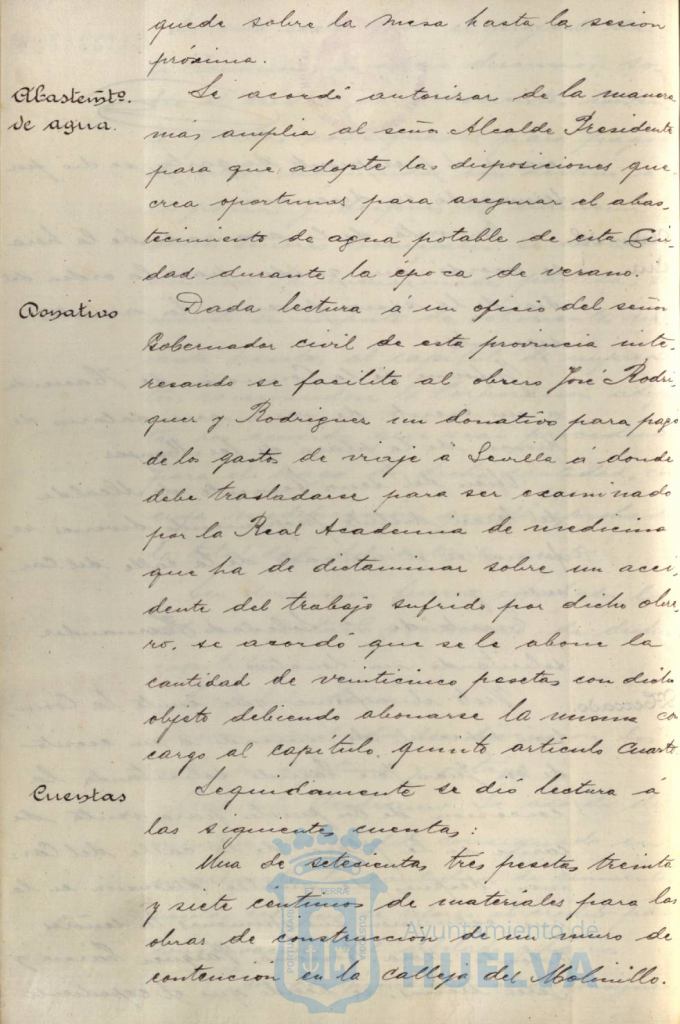 quede sobre la mesa hasta la sesion
próxima.
Abastemto.
de agua.
Se acordó autorizar de la manera
más amplia al señor Alcalde Presidente
para que adopte las disposiciones que
crea oportunas para asegurar el abas-
tecimiento de agua potable de esta Ciu-
dad durante la época de verano.
Donativo
Dada lectura á un oficio del señor
Gobernador civil de esta provincia inte-
resando se facilite al obrero José Rodri-
guez y Rodriguez un donativo para pago
de los gastos de viaje á Sevilla á donde
debe trasladarse para ser examinado
por la Real Academia de medicina
que ha de dictaminar sobre un acci-
dente del trabajo sufrido por dicho obre-
ro, se acordó que se le abone la
cantidad de veinticinco pesetas con dicho
objeto debiendo abonarse la misma con
cargo al capítulo quinto artículo cuarto
Cuentas
Seguidamente se dió lectura á
las siguientes cuentas:
Una de setecientas tres pesetas treinta
y siete céntimos de materiales para las
obras de construccion de un muro de
contención en la calleja del Molinillo.
Ayuntamiento de
HUELVA